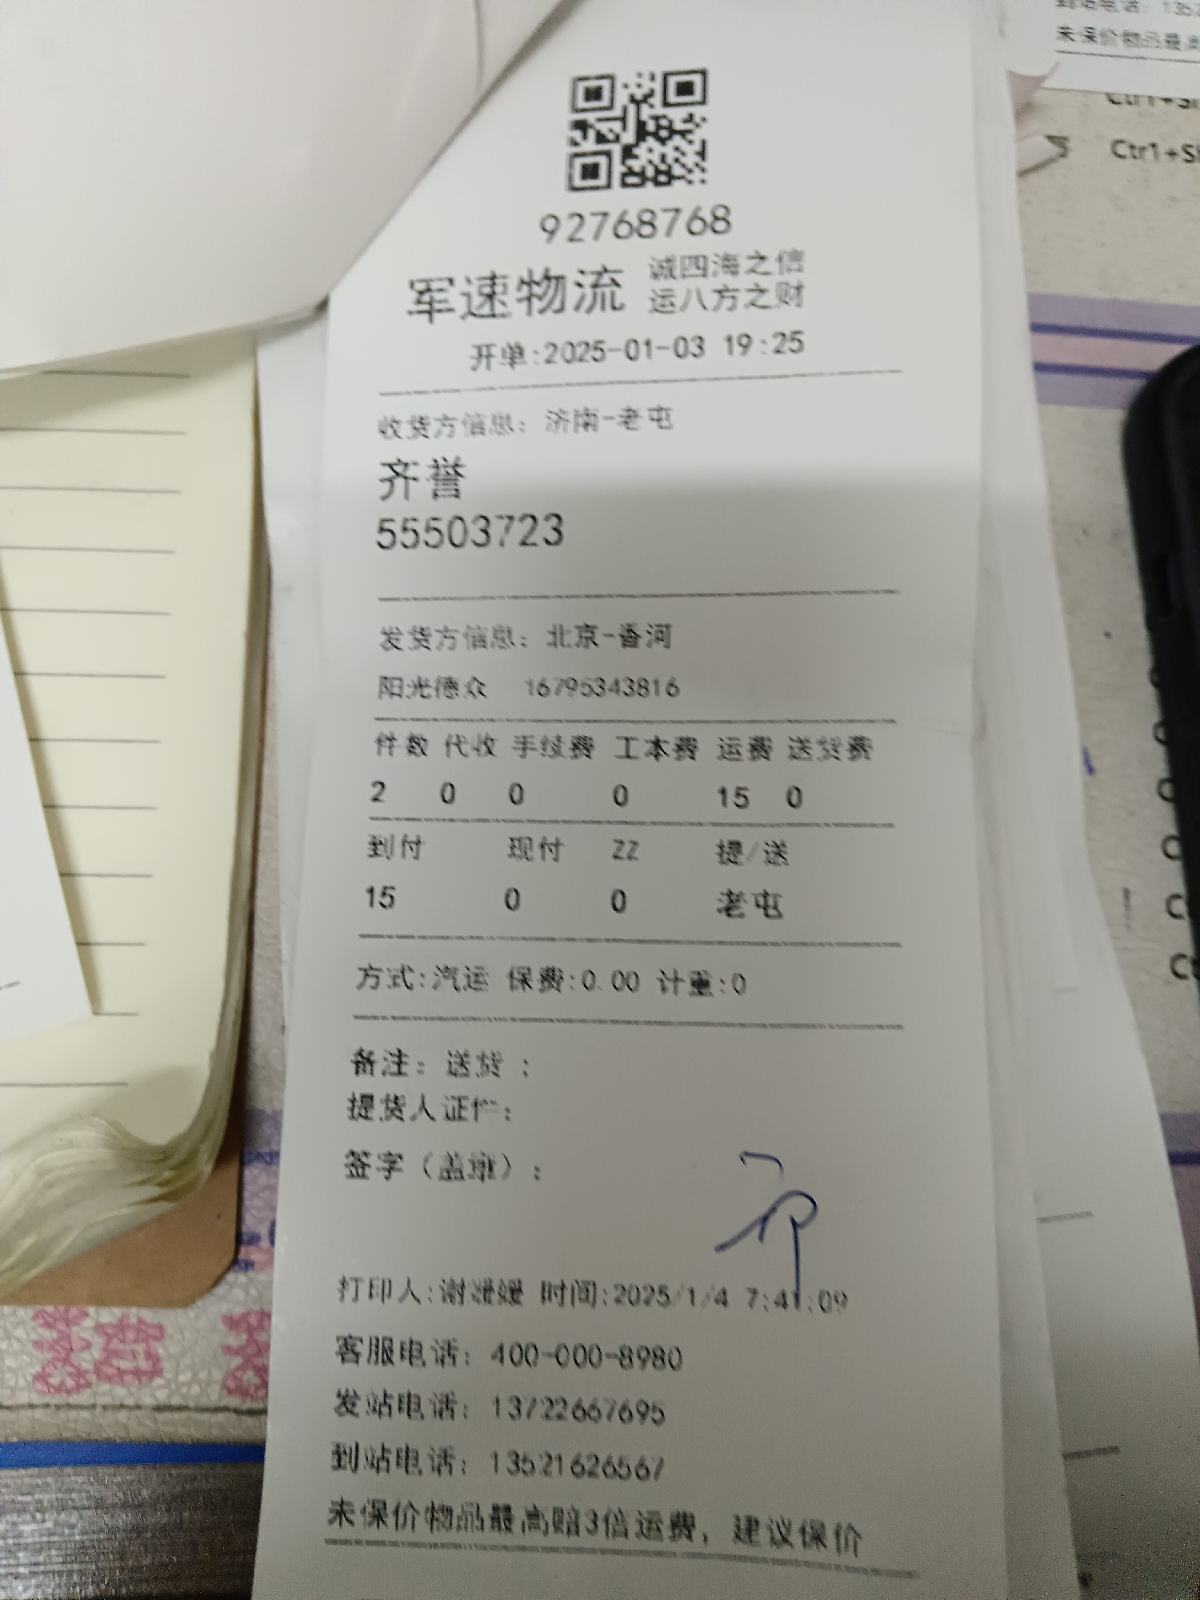 到站电话：1352
未保价物品最高
Ctrl+S
92768768
军速物流
诚四海之信
运八方之财
开单:2025-01-03 19:25
收货方信息：济南-老屯
齐誉
55503723
发货方信息：北京-香河
阳光德众 16795343816
件数 代收 手续费 工本费 运费 送货费
2 0 0 0 15 0
到付 现付 ZZ 提/送
15 0 0 老屯
方式:汽运 保费:0.00 计重:0
备注：送货 ：
提货人证件：
签字（盖章）：
打印人:谢媛媛 时间:2025/1/4 7:41:09
客服电话：400-000-8980
发站电话：13722667695
到站电话：13521626567
未保价物品最高赔3倍运费，建议保价